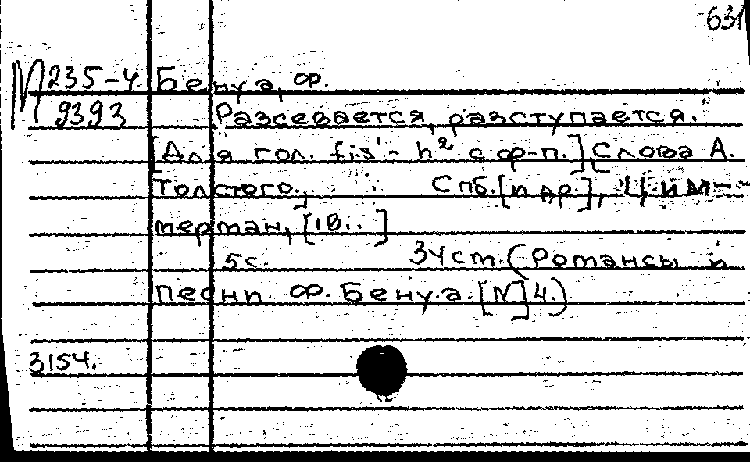 631
М 235-4 Бенуа, Ф.
9393 Разсевается, разступается.
[Для гол. fis' - h² с ф-п.] [Слова А.
Толстого.] Спб. [и др], Циm-
мерман, [18.. ]
5 с. 34 ст. (Романсы и
песни Ф. Бенуа. [N] 4.)
3154.